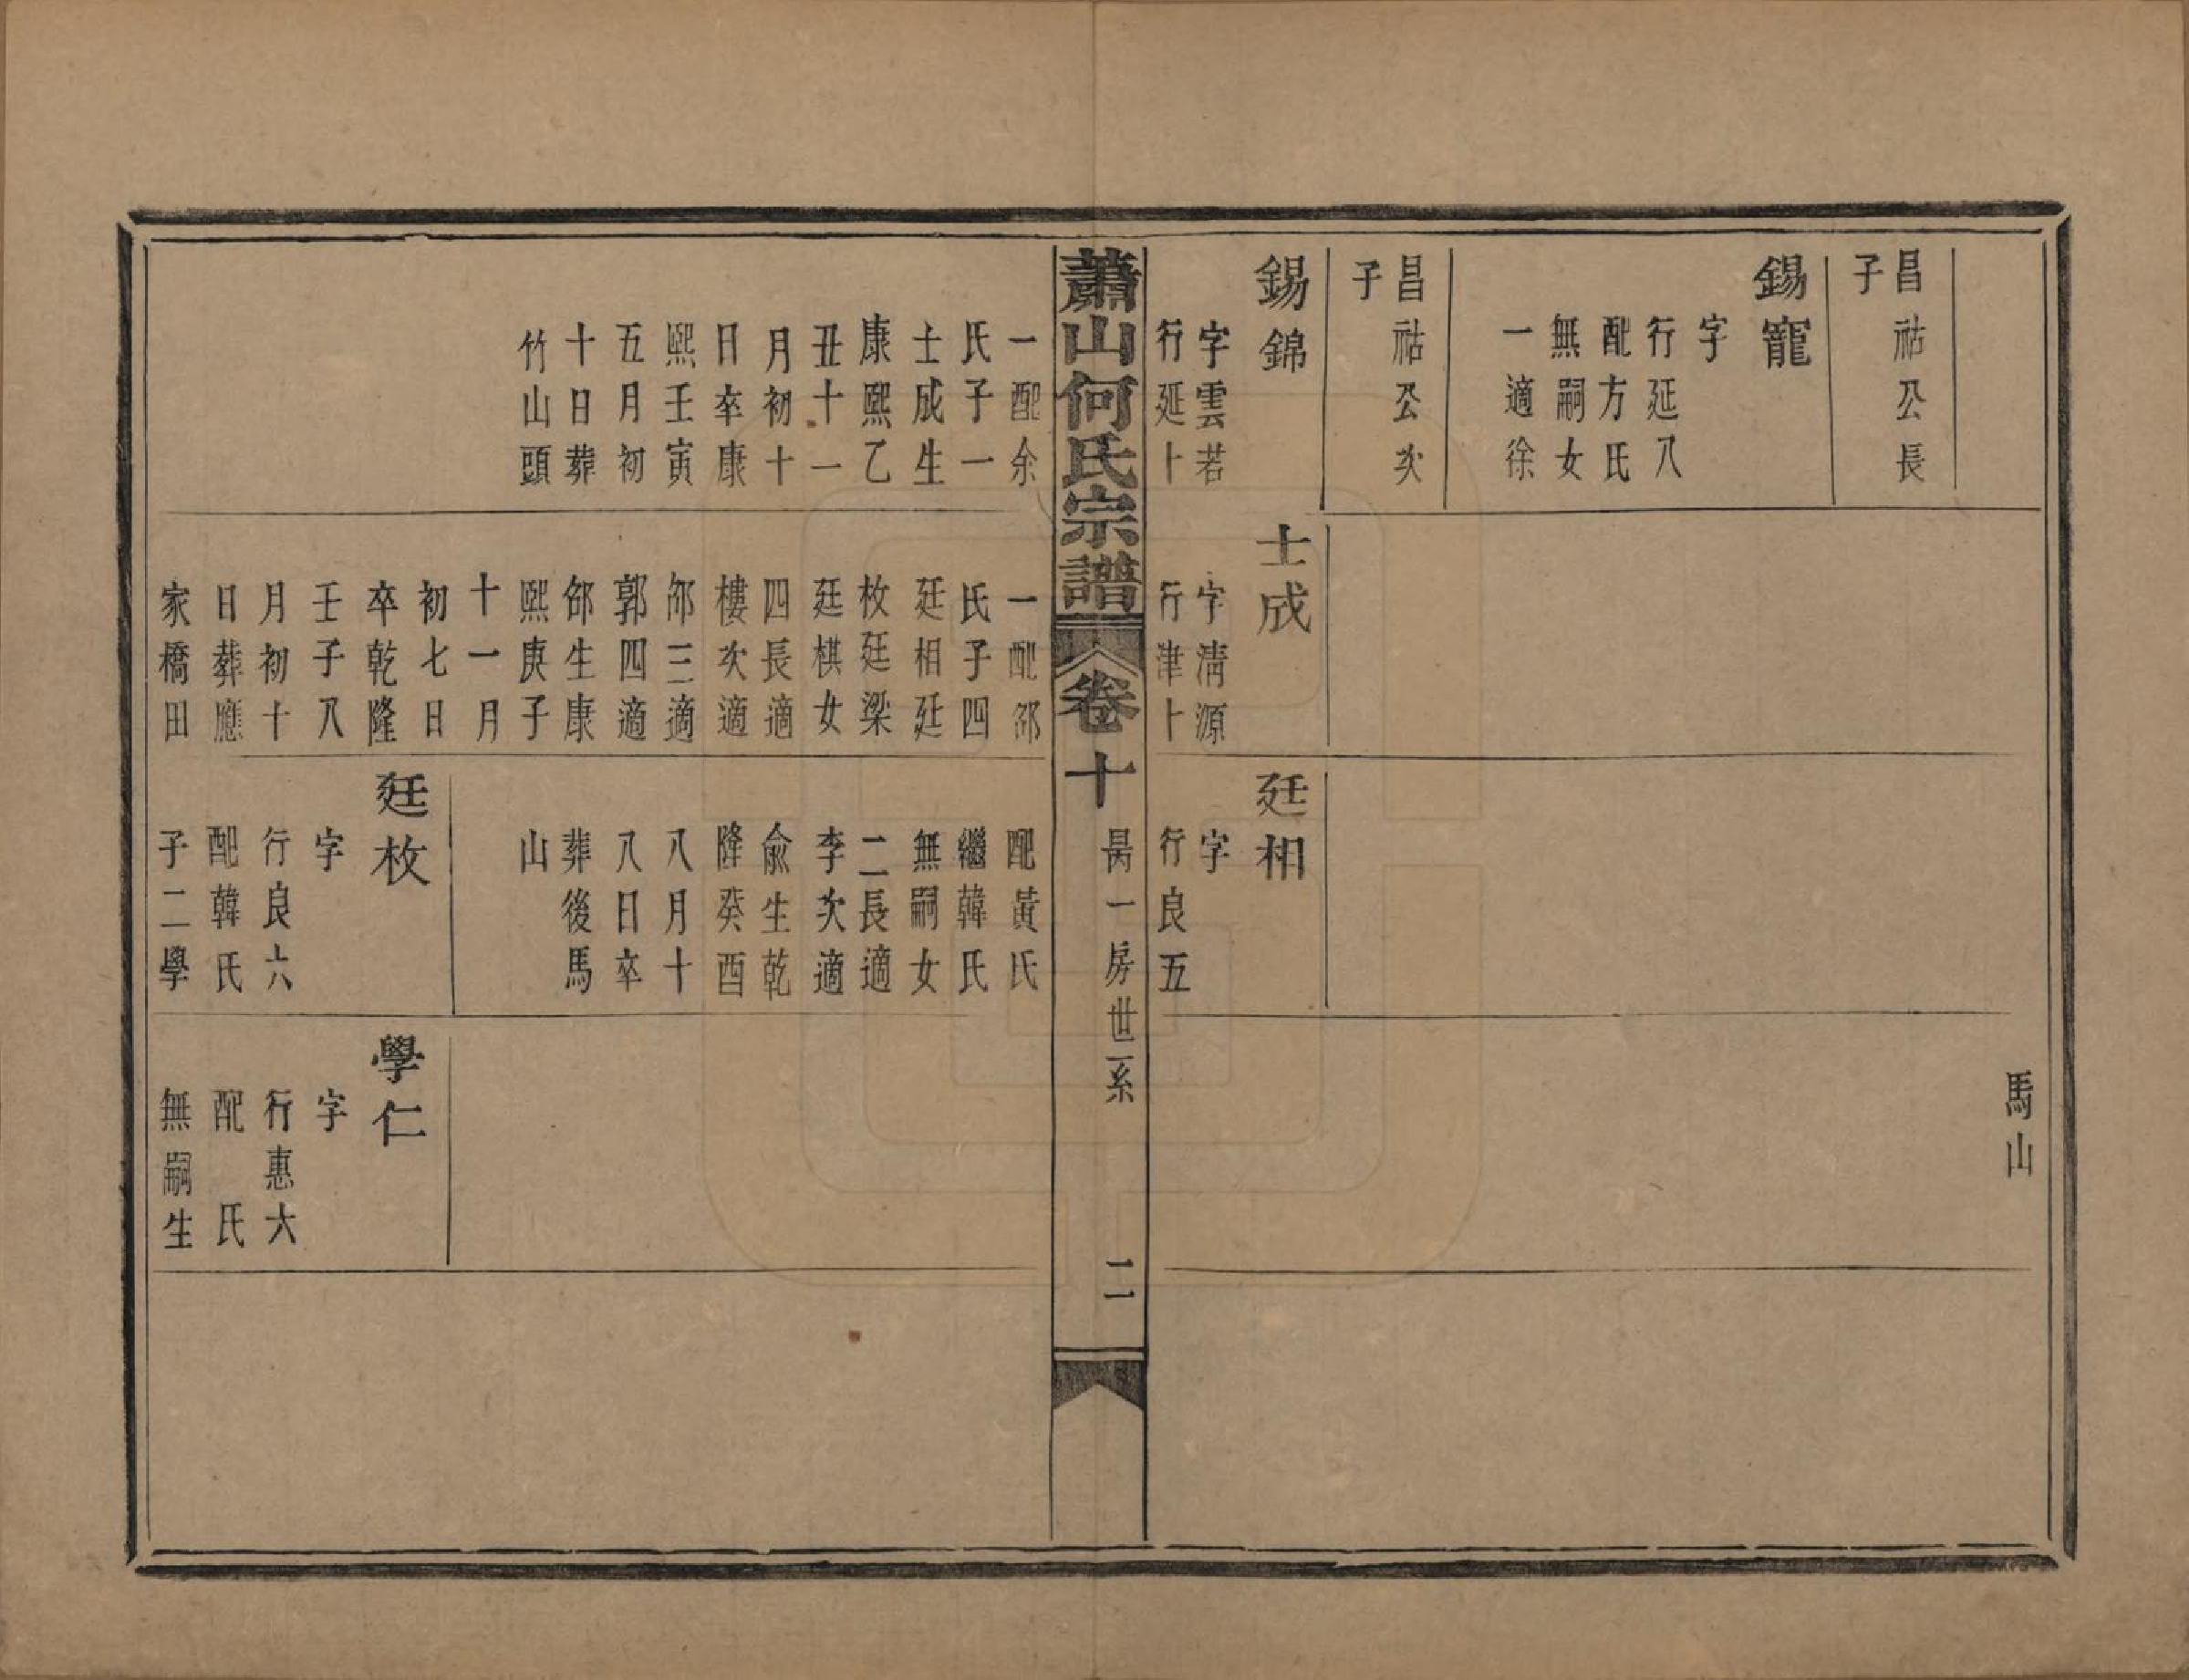 昌祜公長
子
錫寵
字
行延八
配方氏
無嗣女
一適徐
昌祜公次
子
錫錦
字雲若
行延十
士成
字淸源
行津十
廷相
字
行良五
馬山
蕭山何氏宗譜
卷十
一房世系
二
一配余
氏子一
士成生
康熙乙
丑十一
月初十
日卒康
熙壬寅
五月初
十日葬
竹山頭
一配邵
氏子四
廷相廷
枚廷梁
廷棋女
四長適
樓次適
邤三適
郭四適
邵生康
熙庚子
十一月
初七日
卒乾隆
壬子八
月初十
日葬應
家橋田
配黃氏
繼韓氏
無嗣女
二長適
李次適
俞生乾
隆癸酉
八月十
八日卒
葬後馬
山
廷枚
字
行良六
配韓氏
子二學
學仁
字
行惠六
配　氏
無嗣生